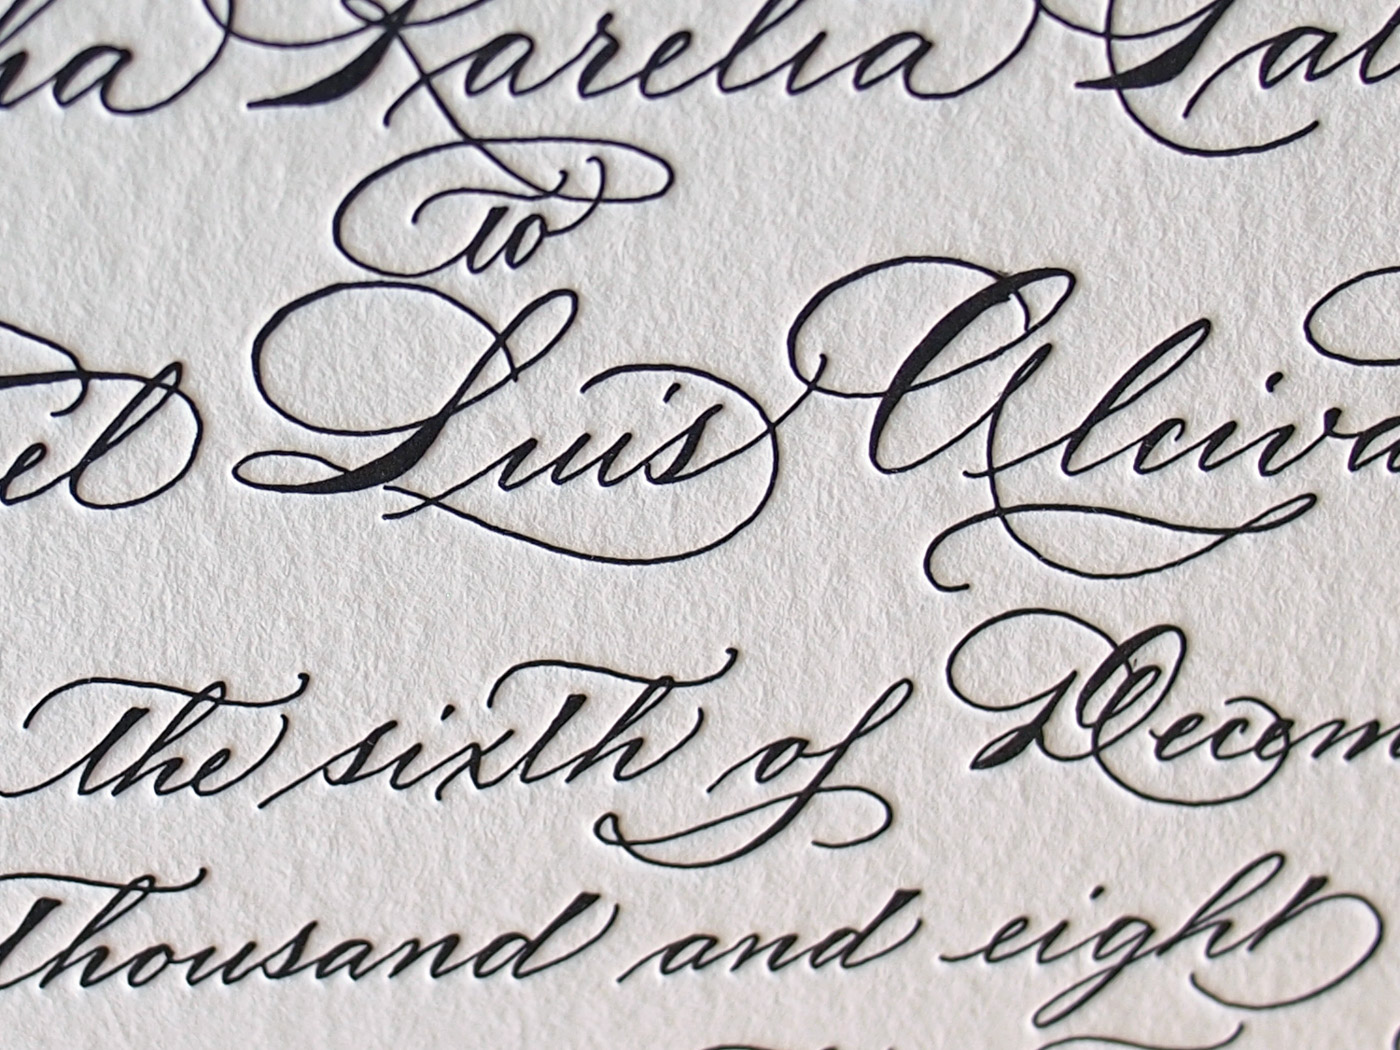 ha Karelia Sal
to
el Luis Alciva
the sixth of Decem
thousand and eight